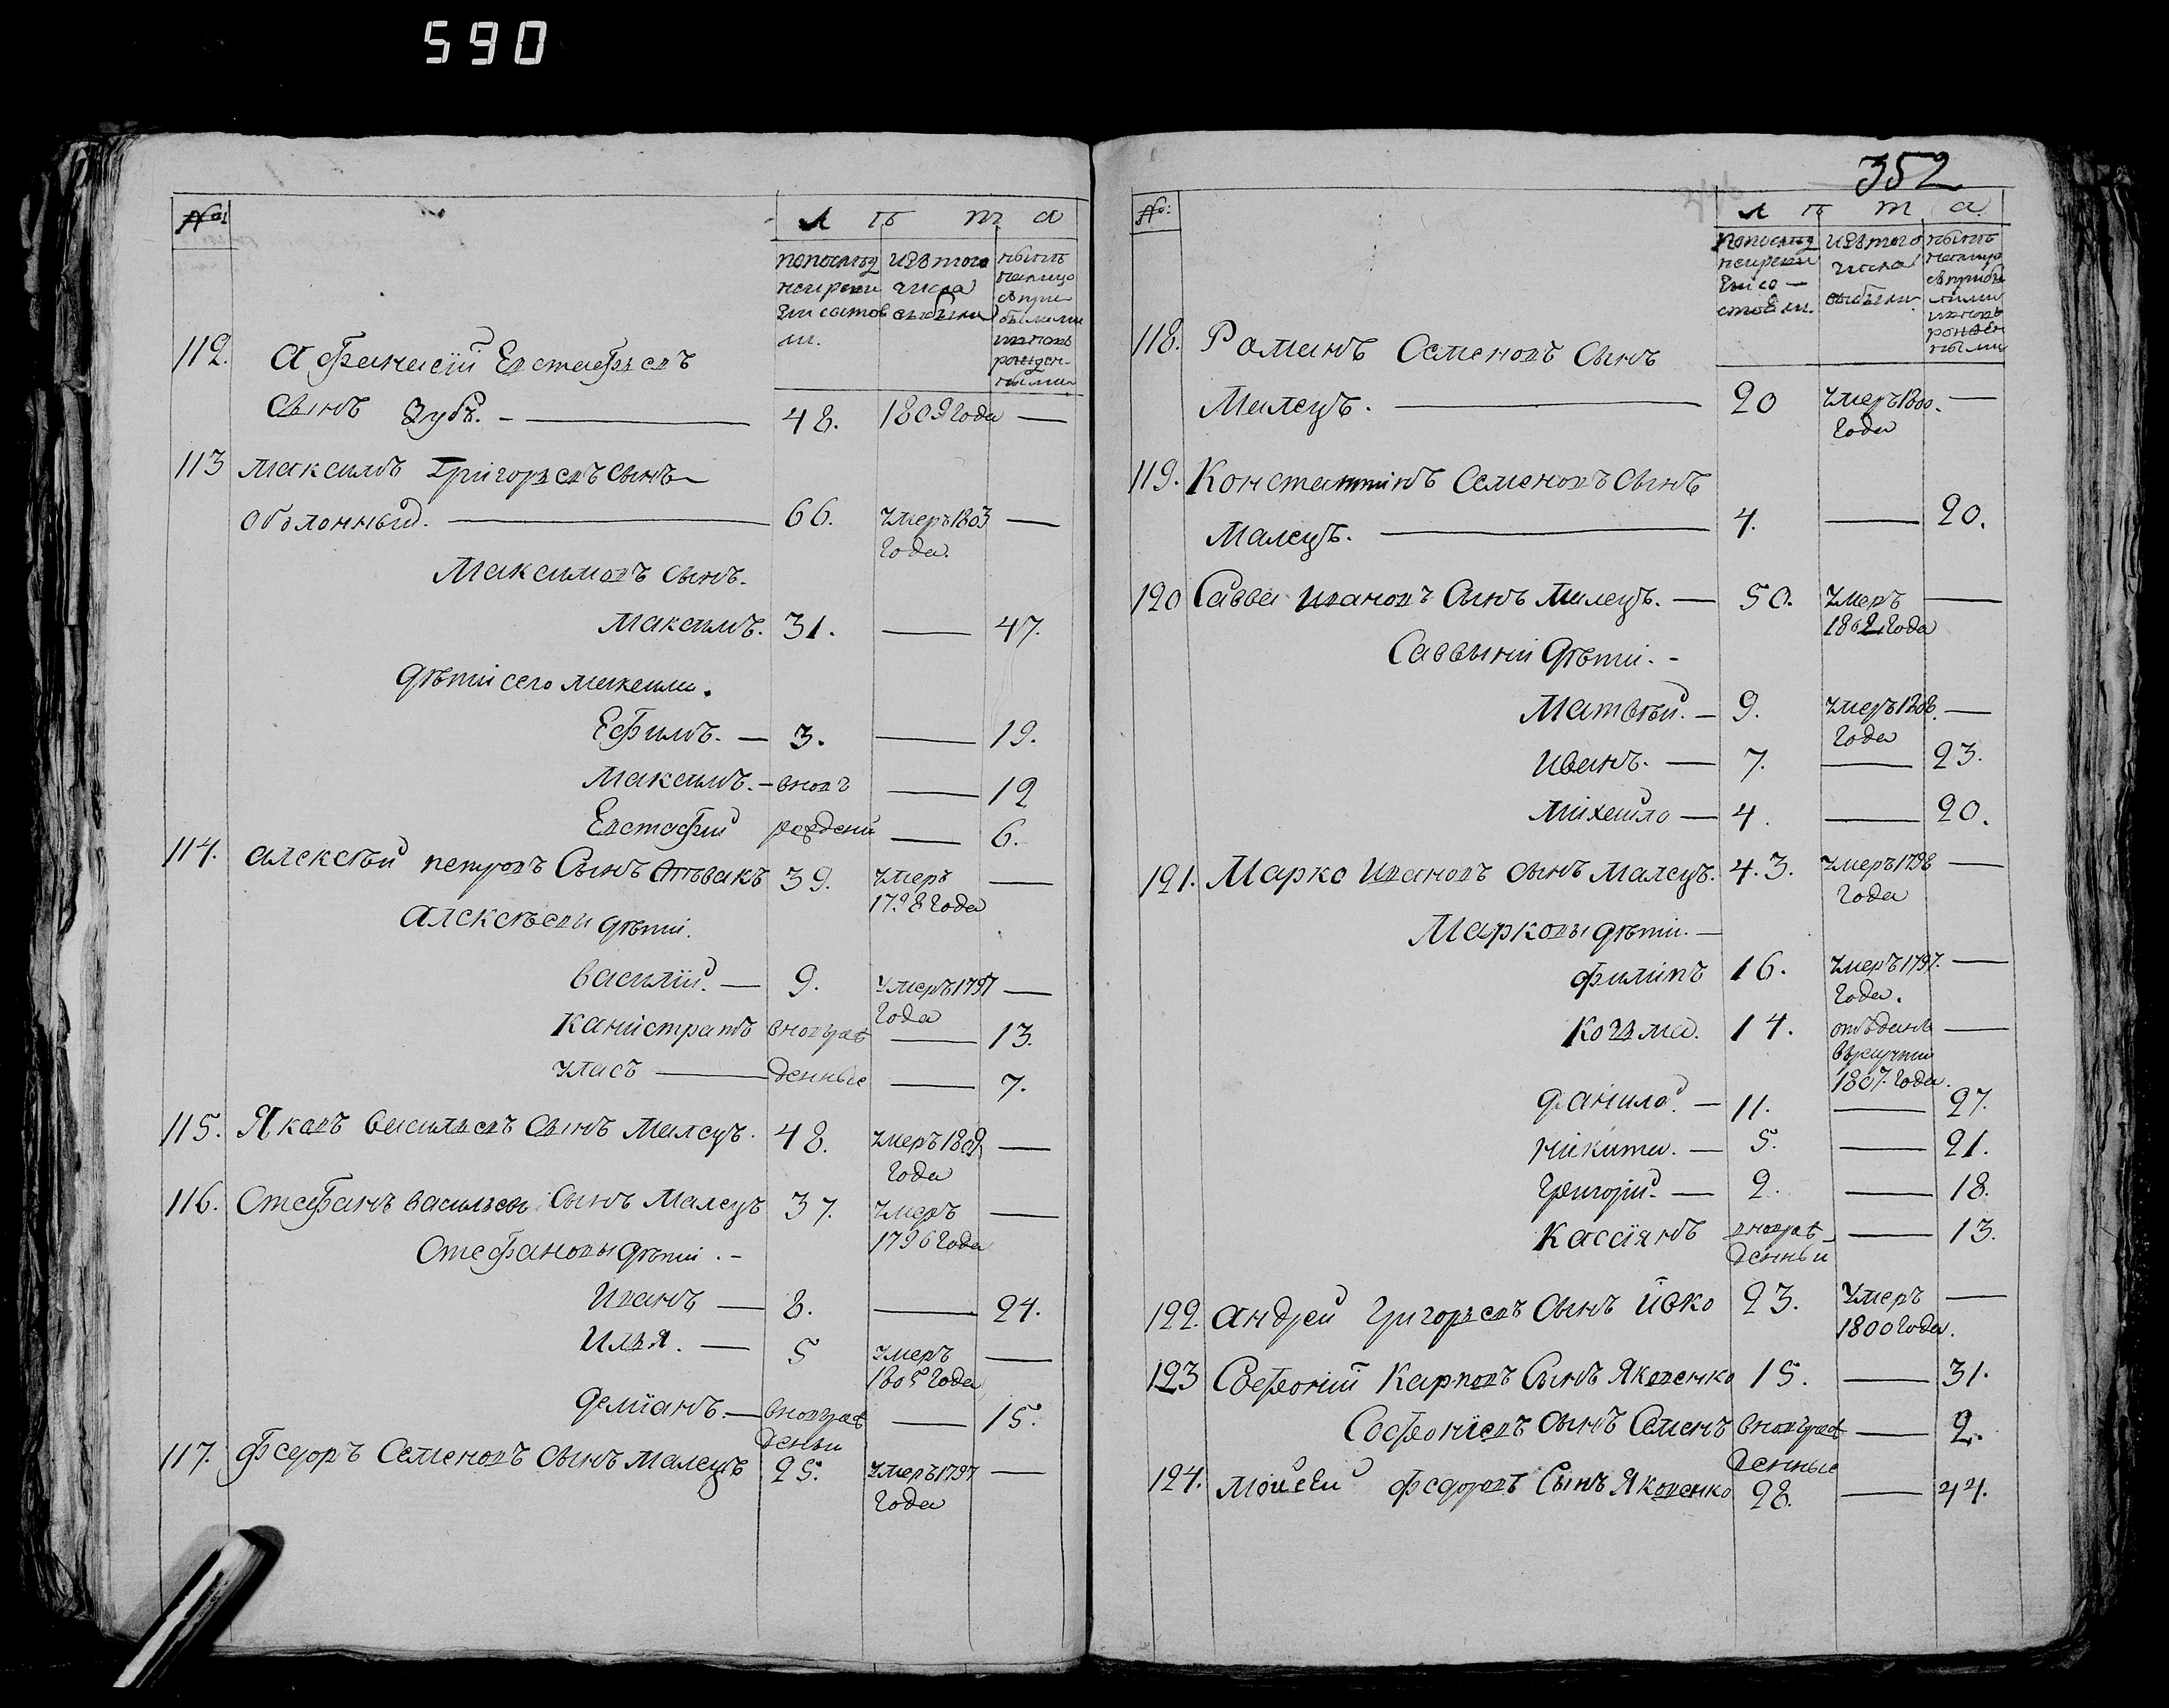 590
№:
Л ѣ т а
попослѣд изътого нынѣ
неиреви числа налицо
зiи состоя выбыли сприбылыми
ли. иновь рожденными
112. Афанасiй Евстафьевъ
сынъ Зубъ. — 48. 1809 года —
113 Максимъ Григорьевъ сынъ
Оболонный. — 66. умеръ 1803 —
года.
Максимовъ сынъ.
Максимъ. 31. — 47.
дѣти сего максима.
Ефимъ. — 3. — 19.
Максимъ. — вновъ — 12
Евстафий рождени — 6.
114. алексѣй петровъ Сынъ 39. умеръ —
1798 года
алексѣевы дѣти.
василiй. — 9. умеръ 1797 —
года
Канистратъ вновърож — 13.
уласъ — денные — 7.
115. Яковъ васильевъ сынъ малецъ. 48. умеръ 1802 —
года
116. Стефанъ васильевъ Сынъ Малецъ 37. умеръ —
1796 года
Стефановы дѣти. —
Иванъ — 8. — 24.
Илья. — 5 умеръ —
1805 года
демiанъ. — вновърож — 15.
денны
117. Феодоръ Семеновъ сынъ малецъ 25. умеръ 1797 —
года
352
№:
Л ѣ т а
попослѣд изътого нынѣ
неиреви числа налицо
зiи со— выбыли сприбы
стояли. лыми
иновь
рожден
ными
118. Романъ Семеновъ сынъ
Малецъ. — 20 умеръ 1800. —
года
119. Константинъ Семеновъ сынъ
Малецъ. — 4. — 20.
120 Савва ивановъ Сынъ Малецъ. — 50. умеръ —
1802 года
Саввины дѣти. —
Матвѣй. — 9. умеръ 1806. —
года
иванъ. — 7. — 23.
михайло — 4. — 20.
121. Марко Ивановъ сынъ Малецъ. 43. умеръ 1798 —
года
Марковы дѣти. —
филипъ 16. умеръ 1797. —
года.
Козьма. 14. отъданъ —
въкруты
1807. года.
данило. — 11. — 27.
никита. — 5. — 21.
григорiй. — 2. — 18.
Кассiянъ вноврож — 13.
денны
122. андрей григорьевъ сынъ ивко 23. умеръ —
1800 года.
123 Софонiй Карповъ Сынъ Яковенко 15. — 31.
Софонiевъ сынъ Семенъ вновърож — 2.
денные
124. моисей федоровъ Сынъ Яковенко 28. — 44.